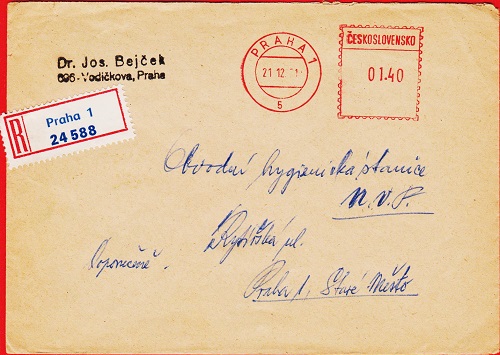 Dr. Jos. Bejček
696-Vodičkova, Praha
PRAHA 1
21 12
5
ČESKOSLOVENSKO
01.40
R
Praha 1
24588
Obvodní hygienická stanice
N.V.P.
Rytířská ul.
Doporučeně.
Praha 1, Staré Město